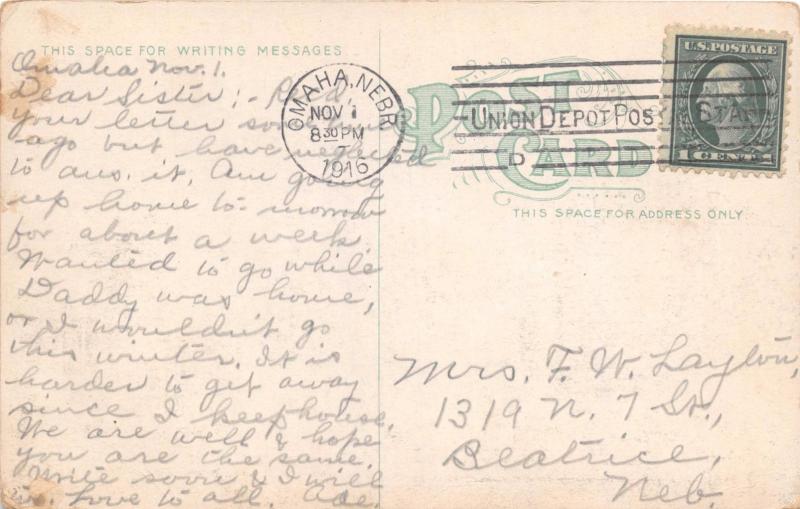 THIS SPACE FOR WRITING MESSAGES
Omaha Nov. 1.
Dear Sister; - Rec'd
your letter some
ago but have neglected
to ans. it. Am going
up home to-morrow
for about a week.
Wanted to go while
Daddy was home,
or I wouldn't go
this winter. It is
harder to get away
since I keep house.
We are well & hope
you are the same.
Write soon & I will
too. Love to all. Ade.
OMAHA, NEBR.
NOV 1
8 30 PM
1916
UNION DEPOT POS
STA
D
U.S. POSTAGE
1 CENT 1
POST
CARD
THIS SPACE FOR ADDRESS ONLY
Mrs. F. W. Layton,
1319 N. 7 St.,
Beatrice,
Neb.